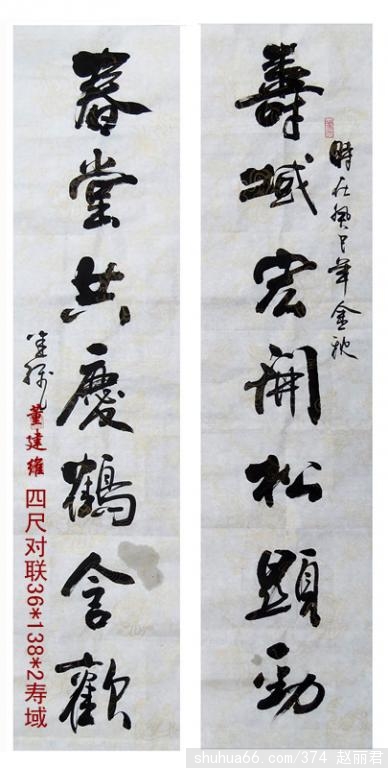 時在癸巳年金秋
壽域宏開松顯勁
春堂共慶鶴含歡
董建維 四尺对联36*138*2寿域
shuhua66.com/374 赵丽君